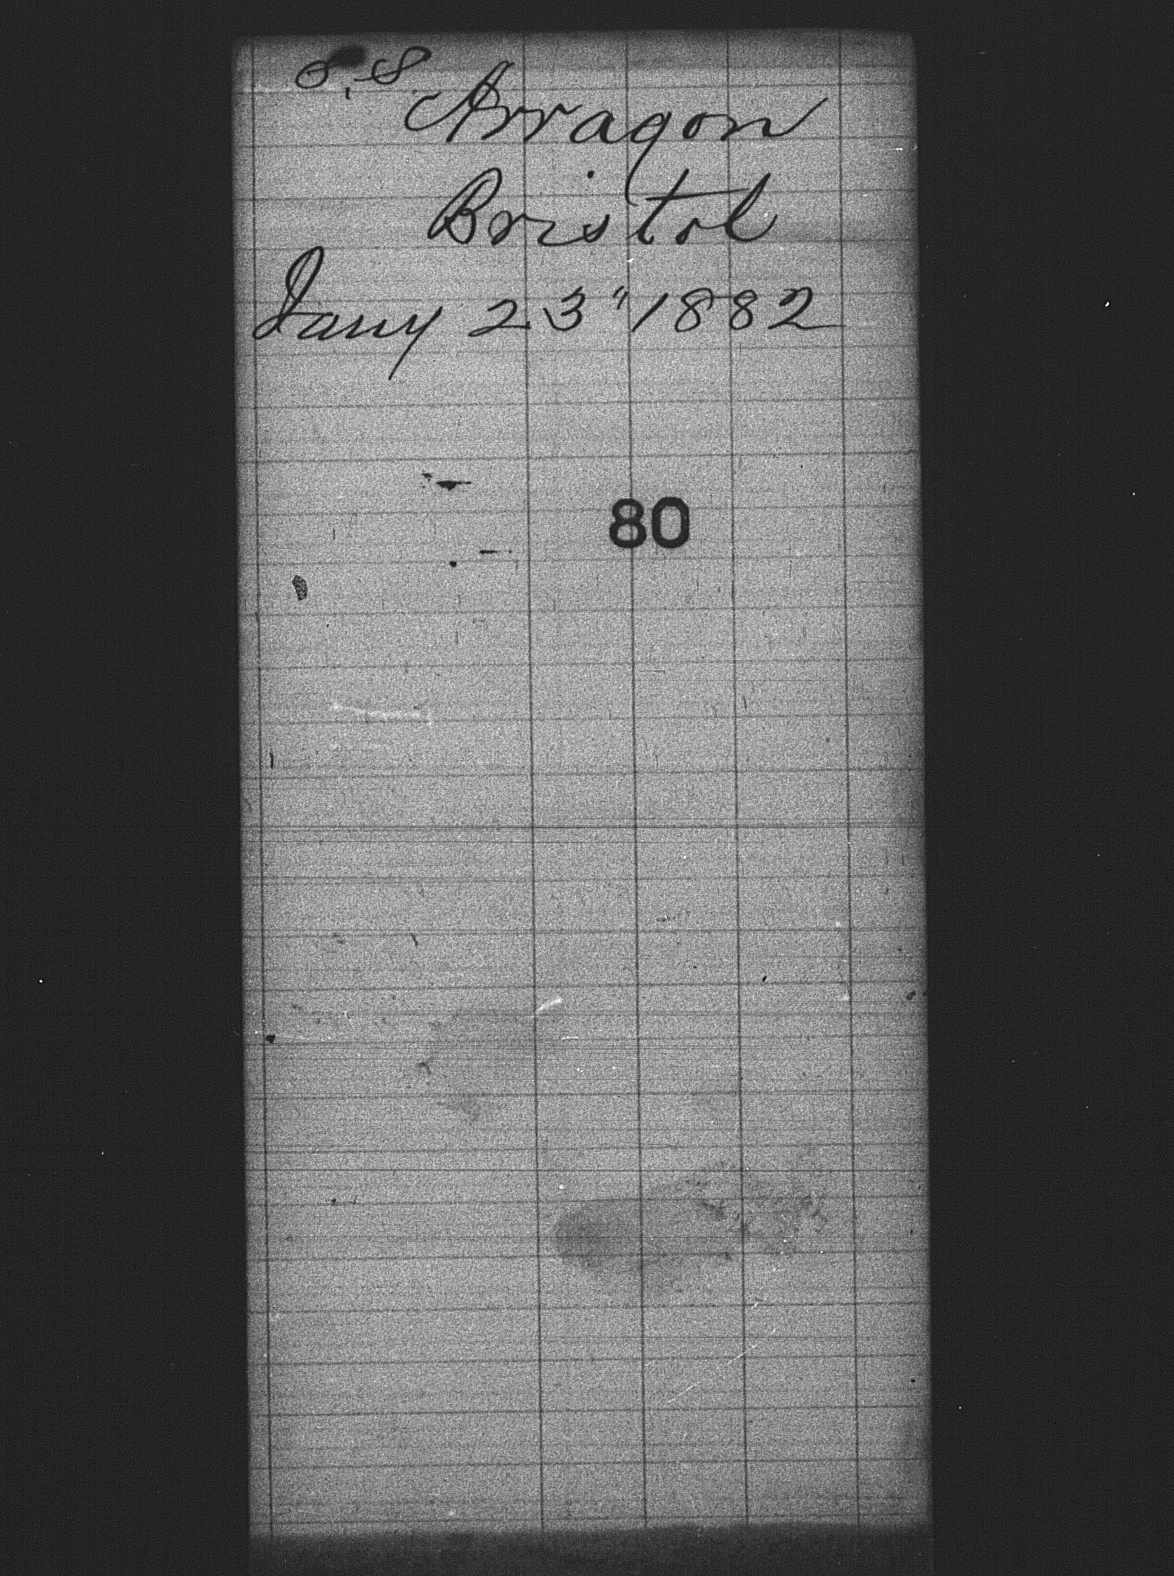 S.S.
Arragon
Bristol
Jany 23" 1882
80